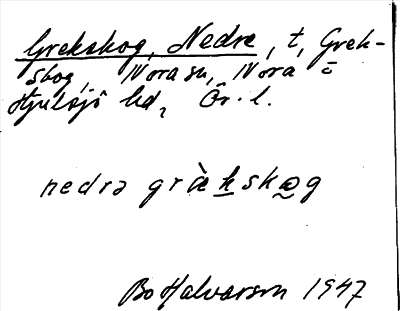 Grekskog, Nedre, t, Grek-
skog, Nora sn, Nora o
Hjulsjö hd, Ör. l.
nedrə grὰkskωg
Bo Halvarson 1947